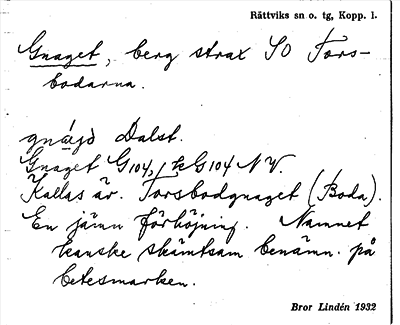 Rättviks sn o. tg, Kopp. l.
Gnaget, berg strax SO Fors-
bodarna.
Dalst.
Gnaget G104, G104 NV.
Kallas äv. Forsbodgnaget (Boda).
En jämn förhöjning. Namnet
kanske skämtsam benämn. på
betesmarken.
Bror Lindén 1932